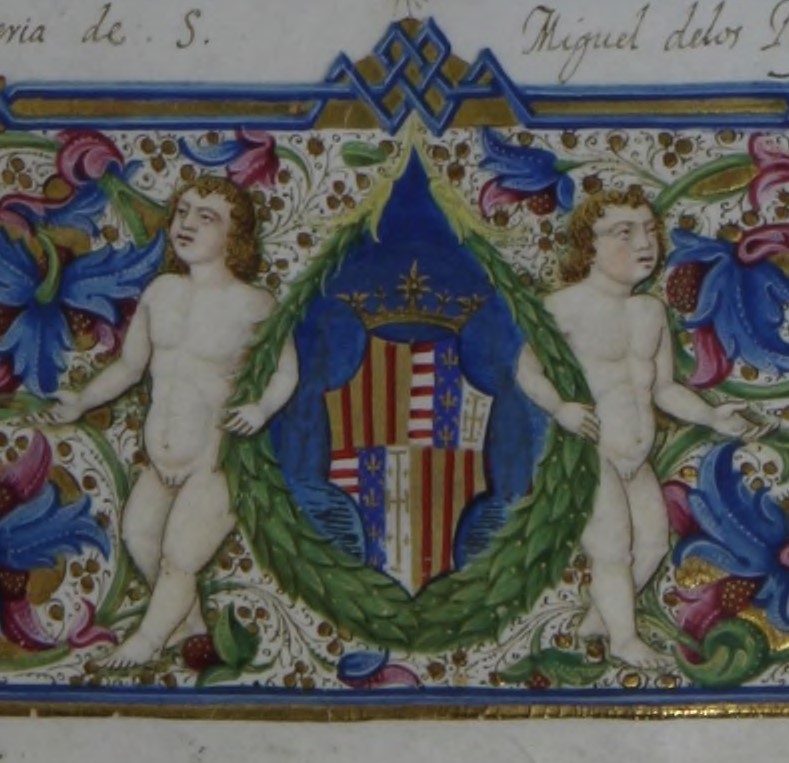 de . S. Miguel delos